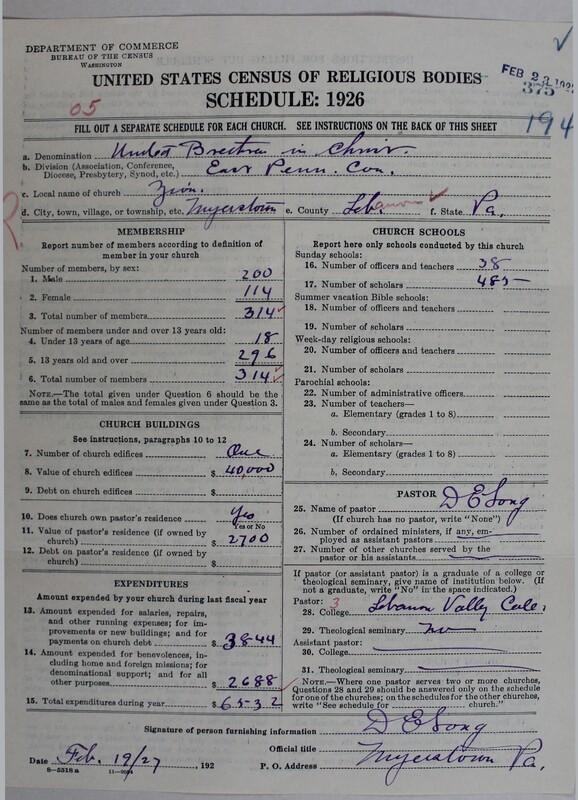 DEPARTMENT OF COMMERCE
BUREAU OF THE CENSUS
WASHINGTON
FEB 23
375
UNITED STATES CENSUS OF RELIGIOUS BODIES
SCHEDULE: 1926
05
194
FILL OUT A SEPARATE SCHEDULE FOR EACH CHURCH. SEE INSTRUCTIONS ON THE BACK OF THIS SHEET
a. Denomination United Brethren in Christ.
b. Division (Association, Conference, Diocese, Presbytery, Synod, etc.) East Penn. Con.
c. Local name of church Zion.
d. City, town, village, or township, etc. Myerstown e. County Lebanon f. State Pa.
MEMBERSHIP
Report number of members according to definition of
member in your church
Number of members, by sex:
1. Male 200
2. Female 114
3. Total number of members 314
Number of members under and over 13 years old:
4. Under 13 years of age 18
5. 13 years old and over 296
6. Total number of members 314
NOTE.—The total given under Question 6 should be
same as the total of males and females given under Question 3.
CHURCH BUILDINGS
See instructions, paragraphs 10 to 12
7. Number of church edifices One
8. Value of church edifices $ 40,000
9. Debt on church edifices $
10. Does church own pastor's residence Yes
Yes or No
11. Value of pastor's residence (if owned by
church) $ 2700
12. Debt on pastor's residence (if owned by
church) $
EXPENDITURES
Amount expended by your church during last fiscal year
13. Amount expended for salaries, repairs,
and other running expenses; for im-
provements or new buildings; and for
payments on church debt $ 3844
14. Amount expended for benevolences, in-
cluding home and foreign missions; for
denominational support; and for all
other purposes $ 2688
15. Total expenditures during year $ 6532
CHURCH SCHOOLS
Report here only schools conducted by this church
Sunday schools:
16. Number of officers and teachers 38
17. Number of scholars 485
Summer vacation Bible schools:
18. Number of officers and teachers
19. Number of scholars
Week-day religious schools:
20. Number of officers and teachers
21. Number of scholars
Parochial schools:
22. Number of administrative officers
23. Number of teachers—
a. Elementary (grades 1 to 8)
b. Secondary
24. Number of scholars—
a. Elementary (grades 1 to 8)
b. Secondary
PASTOR
25. Name of pastor D E Long
(If church has no pastor, write "None")
26. Number of ordained ministers, if any, em-
ployed as assistant pastors
27. Number of other churches served by the
pastor or his assistants
If pastor (or assistant pastor) is a graduate of a college or
theological seminary, give name of institution below. (If
not a graduate, write "No" in the space indicated.)
Pastor: 3
28. College Lebanon Valley
29. Theological seminary no
Assistant pastor:
30. College
31. Theological seminary
NOTE.—Where one pastor serves two or more churches,
Questions 28 and 29 should be answered only on the schedule
for one of the churches; on the schedules for the other churches,
write "See schedule for church."
Signature of person furnishing information D E Long
Official title
Date Feb. 19/27, 192 P. O. Address Myerstown Pa.
8—5318 a